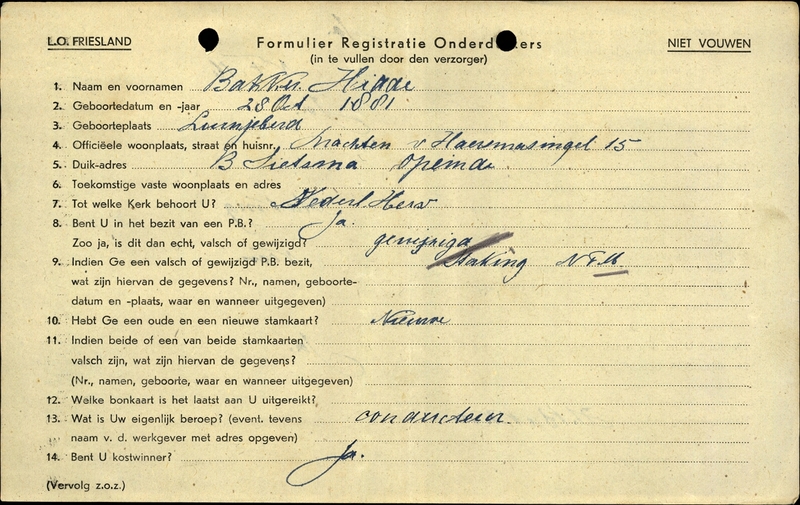 L.O. FRIESLAND
Formulier Registratie Onderduikers
NIET VOUWEN
(in te vullen door den verzorger)
1. Naam en voornamen Bakker Hidde
2. Geboortedatum en -jaar 28 Oct 1881
3. Geboorteplaats Luinjeberd
4. Officiëele woonplaats, straat en huisnr. Drachten v Haersmasingel 15
5. Duik-adres B Sietsma Opeinde
6. Toekomstige vaste woonplaats en adres
7. Tot welke Kerk behoort U? Nederl. Herv
8. Bent U in het bezit van een P.B.? Ja.
Zoo ja, is dit dan echt, valsch of gewijzigd? gewijzigd
9. Indien Ge een valsch of gewijzigd P.B. bezit, Staking N T M
wat zijn hiervan de gegevens? Nr., namen, geboorte-
datum en -plaats, waar en wanneer uitgegeven)
10. Hebt Ge een oude en een nieuwe stamkaart? Nieuwe
11. Indien beide of een van beide stamkaarten
valsch zijn, wat zijn hiervan de gegevens?
(Nr., namen, geboorte, waar en wanneer uitgegeven)
12. Welke bonkaart is het laatst aan U uitgereikt?
13. Wat is Uw eigenlijk beroep? (event. tevens conducteur
naam v. d. werkgever met adres opgeven)
14. Bent U kostwinner? Ja.
(Vervolg z.o.z.)